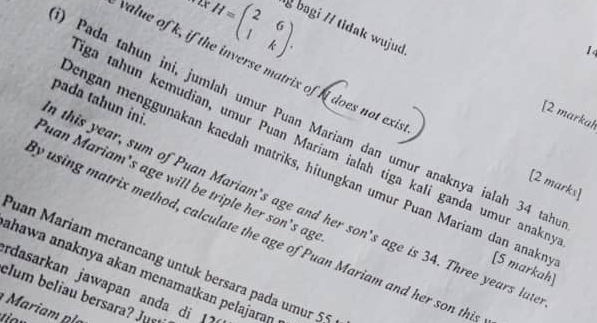 bagi H tidak wujud.
H = ( 2 6
1 k ).
value of k, if the inverse matrix of H does not exist.
[2 markah
[2 marks]
(i) Pada tahun ini, jumlah umur Puan Mariam dan umur anaknya ialah 34 tahun.
Tiga tahun kemudian, umur Puan Mariam ialah tiga kali ganda umur anaknya.
Dengan menggunakan kaedah matriks, hitungkan umur Puan Mariam dan anaknya
pada tahun ini.
[5 markah]
In this year, sum of Puan Mariam's age and her son's age is 34. Three years later,
Puan Mariam's age will be triple her son's age.
By using matrix method, calculate the age of Puan Mariam and her son this
Puan Mariam merancang untuk bersara pada umur 55
bahawa anaknya akan menamatkan pelajaran
jawapan anda di
beliau bersara?
Mariam